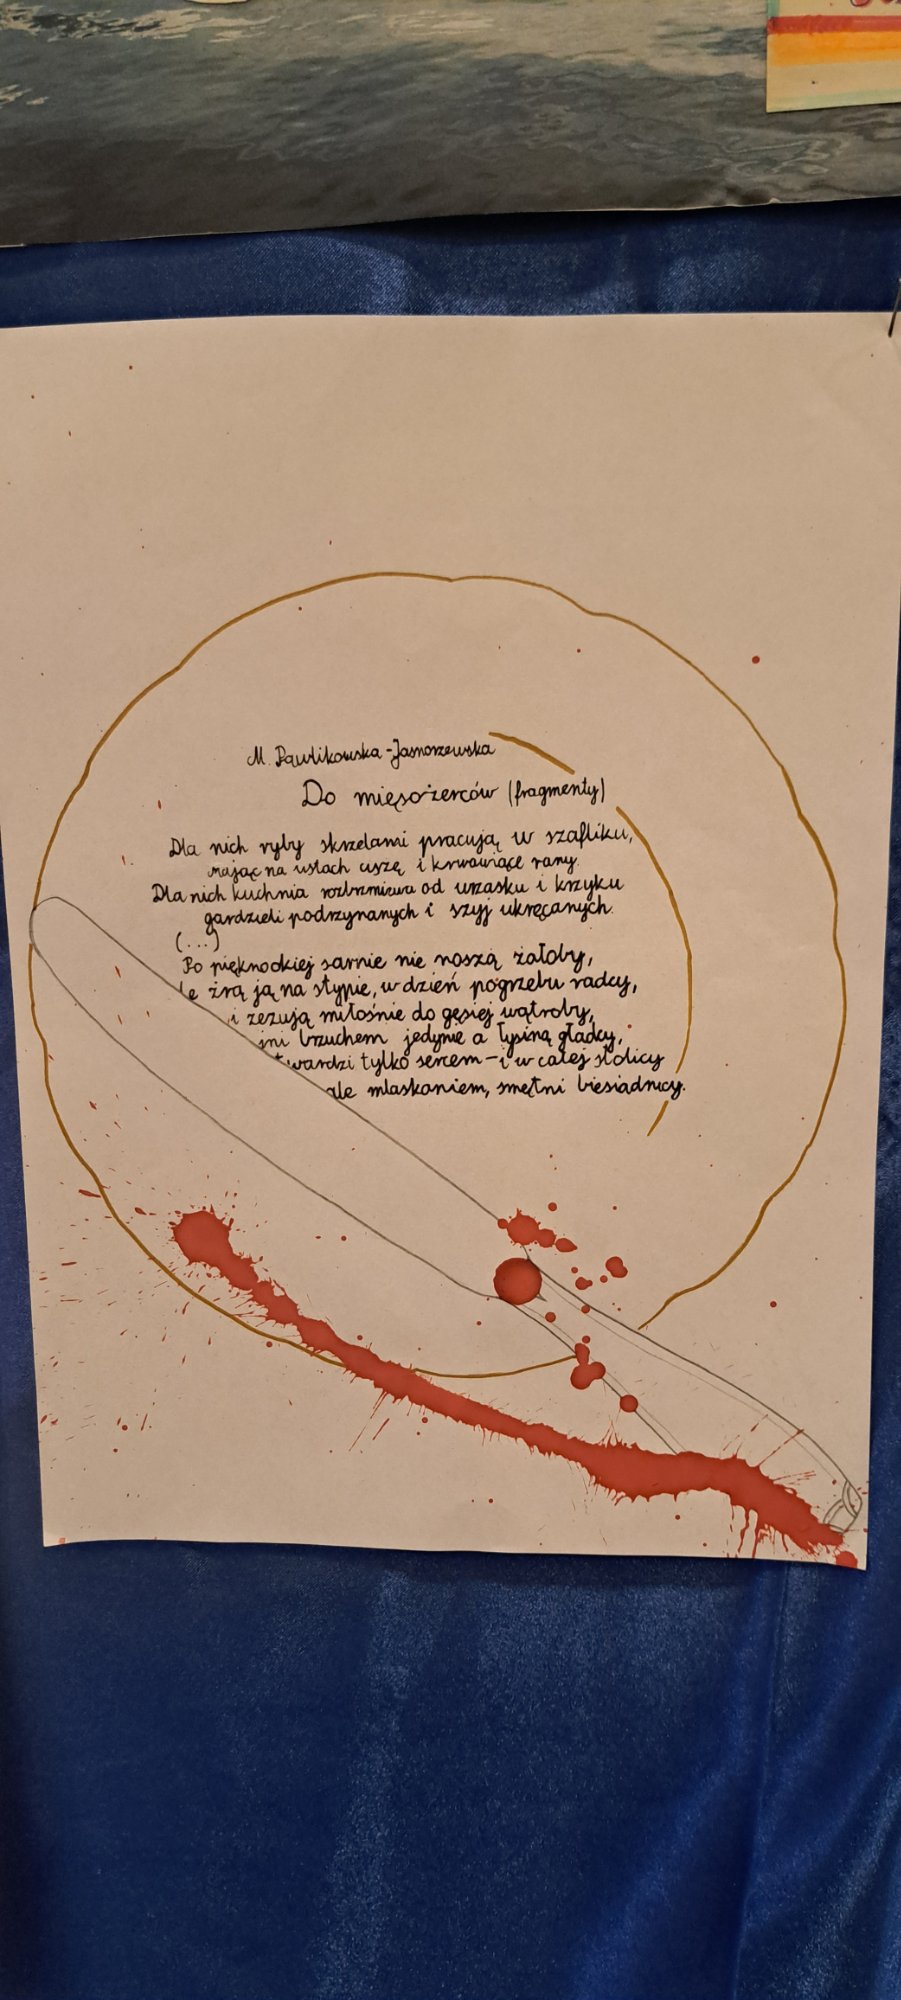 M. Pawlikowska-Jasnorzewska
Do mięsożerców (fragmenty)
Dla nich ryby skrzelami pracują w szafliku,
mając na ustach uszę i krwawiące rany.
Dla nich kuchnia rozbrzmiewa od wrzasku i krzyku
gardzieli podrzynanych i szyj ukręcanych.
(...)
Po pięknookiej sarnie nie noszą żałoby,
le żrą ją na stypie, w dzień pogrzebu radcy,
i zezują miłośnie do gęsiej wątroby,
śni brzuchem jedynie a łysiną gładcy,
twardzi tylko sercem - i w całej stolicy
ale mlaskaniem, smętni biesiadnicy.